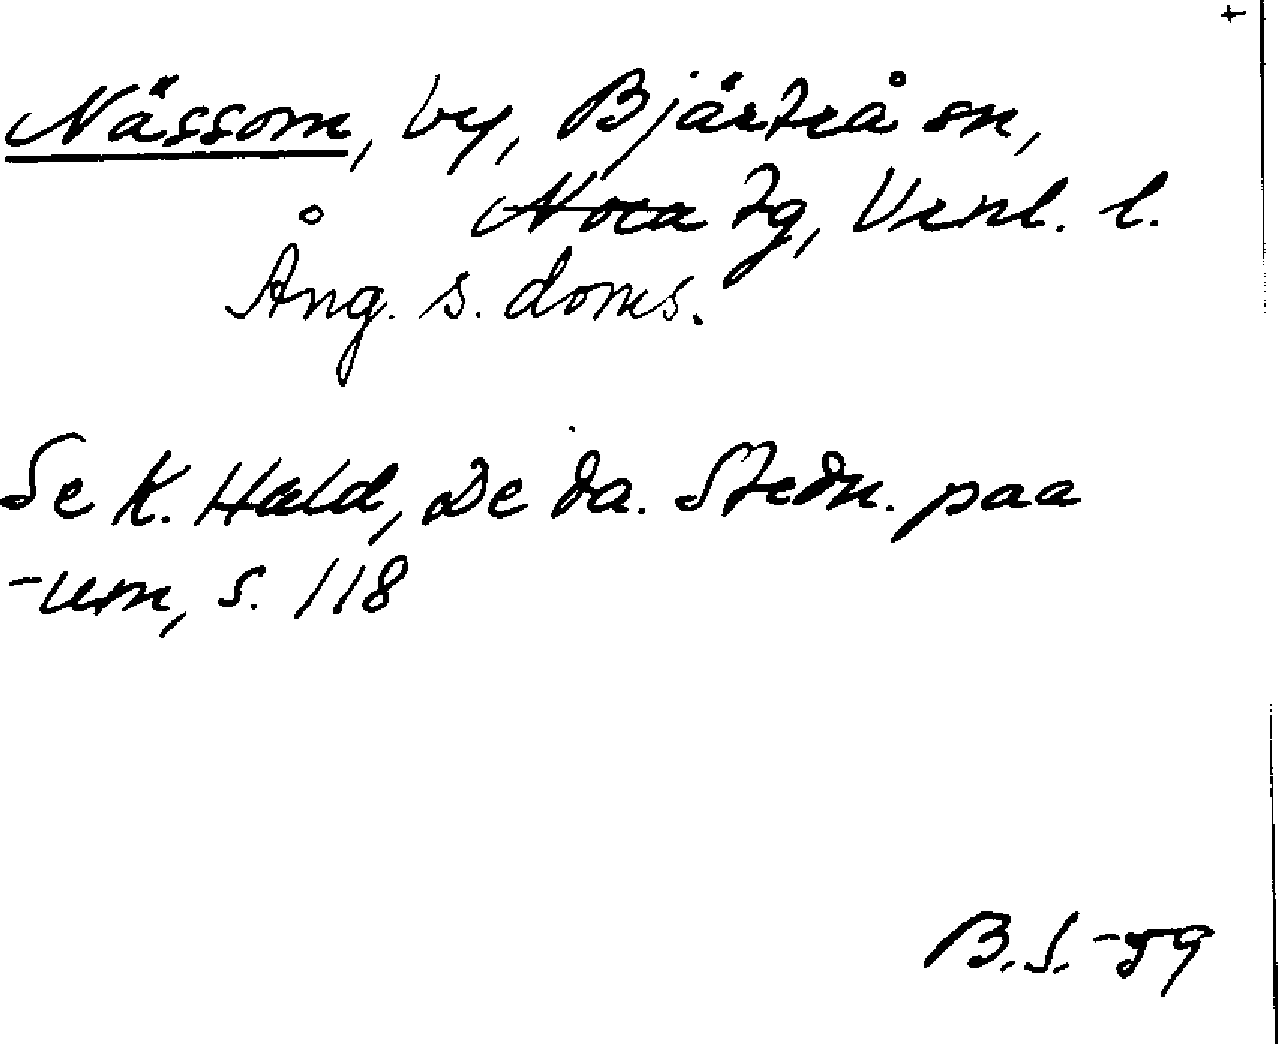 Nässom, by, Bjärtrå sn,
Nora tg, Vnl. l.
Ång. s. doms.
Se K. Hald, De da. Stedn. paa
-um, s. 118
B.S. -59